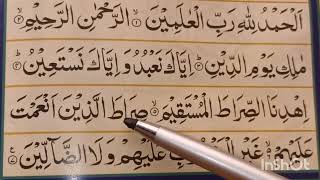 اَلْحَمْدُ لِلّٰهِ رَبِّ الْعٰلَمِيْنَ ۙ﴿۱﴾ الرَّحْمٰنِ الرَّحِيْمِ ۙ﴿۲﴾
مٰلِكِ يَوْمِ الدِّيْنِ ؕ﴿۳﴾ اِيَّاكَ نَعْبُدُ وَ اِيَّاكَ نَسْتَعِيْنُ ؕ﴿۴﴾
اِهْدِنَا الصِّرَاطَ الْمُسْتَقِيْمَ ۙ﴿۵﴾ صِرَاطَ الَّذِيْنَ اَنْعَمْتَ
عَلَيْهِمْ ۙ۬ غَيْرِ عَلَيْهِمْ وَ لَا الضَّآلِّيْنَ
InShot